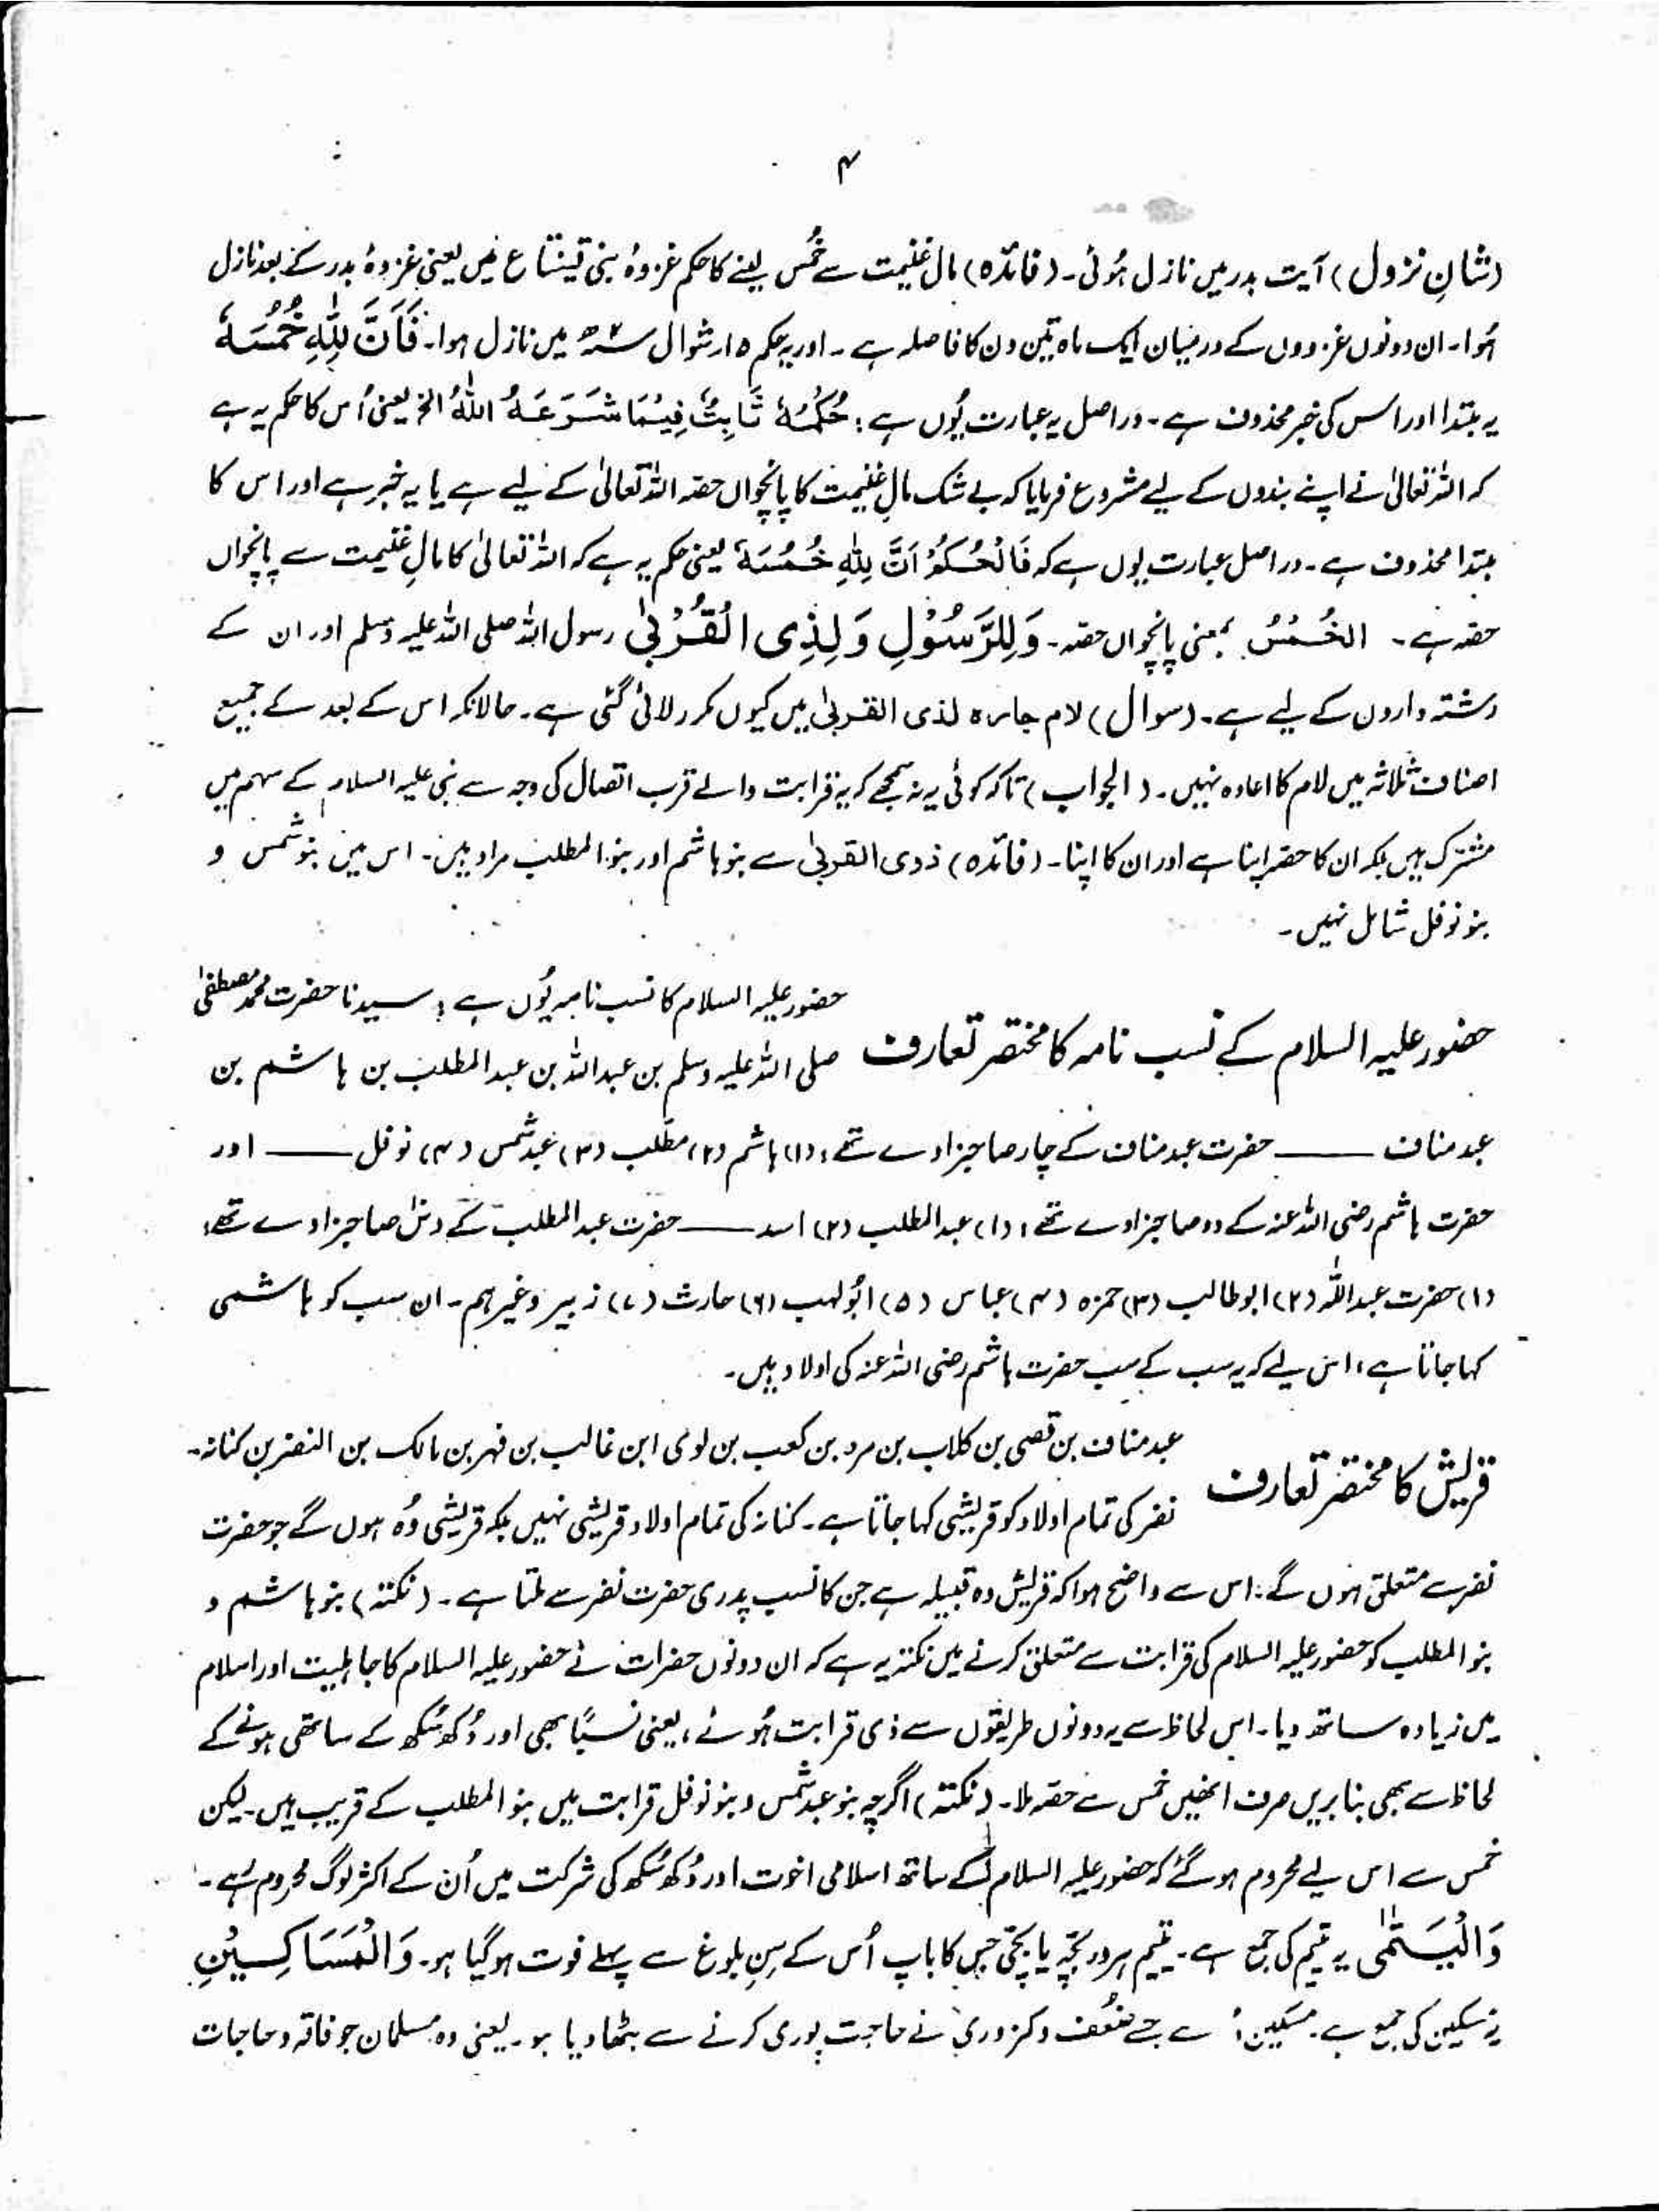 ۴
(شانِ نزول) آیت بدر میں نازل ہُوئی۔ (فائدہ) مالِ غنیمت سے خُمس لینے کا حکم غزوۂ بنی قینقاع میں یعنی غزوۂ بدر کے بعد نازل
ہُوا۔ ان دونوں غزووں کے درمیان ایک ماہ تین دن کا فاصلہ ہے۔ اور یہ حکم ۱۵ شوال ۲ھ میں نازل ہوا۔ فَاَنَّ لِلّٰهِ خُمُسَهٗ
یہ مبتدا اور اس کی خبر محذوف ہے۔ دراصل یہ عبارت یُوں ہے: حُكْمُهٗ ثَابِتٌ فِيْمَا شَرَعَهُ اللّٰهُ الخ یعنی اُس کا حکم یہ ہے
کہ اللہ تعالیٰ نے اپنے بندوں کے لیے مشروع فرمایا کہ بے شک مالِ غنیمت کا پانچواں حصہ اللہ تعالیٰ کے لیے ہے یا یہ خبر ہے اور اس کا
مبتدا محذوف ہے۔ دراصل عبارت یوں ہے کہ فَالْحُكْمُ اَنَّ لِلّٰهِ خُمُسَهٗ یعنی حکم یہ ہے کہ اللہ تعالیٰ کا مالِ غنیمت سے پانچواں
حصہ ہے۔ الخُمُسُ بمعنی پانچواں حصہ۔ وَلِلرَّسُوْلِ وَلِذِی الْقُرْبٰی رسول اللہ صلی اللہ علیہ وسلم اور ان کے
رشتہ داروں کے لیے ہے۔ (سوال) لام جارہ لذی القربیٰ میں کیوں مکرر لائی گئی ہے۔ حالانکہ اس کے بعد کے جمیع
اصناف ثلاثہ میں لام کا اعادہ نہیں۔ (الجواب) تاکہ کوئی یہ نہ سمجھے کہ یہ قرابت والے قرب اتصال کی وجہ سے نبی علیہ السلام کے سہم میں
مشترک ہیں بلکہ ان کا حصہ اپنا ہے اور ان کا اپنا۔ (فائدہ) ذوی القربیٰ سے بنو ہاشم اور بنو المطلب مراد ہیں۔ اس میں بنو شمس و
بنو نوفل شامل نہیں۔
حضور علیہ السلام کے نسب نامہ کا مختصر تعارف
حضور علیہ السلام کا نسب نامہ یُوں ہے: سیدنا حضرت محمد مصطفیٰ
صلی اللہ علیہ وسلم بن عبداللہ بن عبدالمطلب بن ہاشم بن
عبد مناف —— حضرت عبد مناف کے چار صاحبزادے تھے: (۱) ہاشم (۲) مطّلب (۳) عبد شمس (۴) نوفل —— اور
حضرت ہاشم رضی اللہ عنہ کے دو صاحبزادے تھے: (۱) عبدالمطلب (۲) اسد —— حضرت عبدالمطلب کے دس صاحبزادے تھے:
(۱) حضرت عبداللہ (۲) ابو طالب (۳) حمزہ (۴) عباس (۵) ابُو لہب (۶) حارث (۷) زبیر وغیرہم۔ ان سب کو ہاشمی
کہا جاتا ہے، اس لیے کہ یہ سب کے سب حضرت ہاشم رضی اللہ عنہ کی اولاد ہیں۔
قریش کا مختصر تعارف
عبد مناف بن قصی بن کلاب بن مرہ بن کعب بن لوی ابن غالب بن فہر بن مالک بن النضر بن کنانہ۔
نضر کی تمام اولاد کو قریشی کہا جاتا ہے۔ کنانہ کی تمام اولاد قریشی نہیں بلکہ قریشی وُہ ہوں گے جو حضرت
نضر سے متعلق ہوں گے: اس سے واضح ہوا کہ قریش وہ قبیلہ ہے جن کا نسب پدری حضرت نضر سے ملتا ہے۔ (نکتہ) بنو ہاشم و
بنو المطلب کو حضور علیہ السلام کی قرابت سے متعلق کرنے میں نکتہ یہ ہے کہ ان دونوں حضرات نے حضور علیہ السلام کا جاہلیت اور اسلام
میں زیادہ ساتھ دیا۔ اس لحاظ سے یہ دونوں طریقوں سے ذی قرابت ہُوئے، یعنی نسبًا بھی اور دُکھ سُکھ کے ساتھی ہونے کے
لحاظ سے بھی بنا بریں صرف انھیں خمس سے حصہ ملا۔ (نکتہ) اگرچہ بنو عبد شمس و بنو نوفل قرابت میں بنو المطلب کے قریب ہیں۔ لیکن
خمس سے اس لیے محروم ہو گئے کہ حضور علیہ السلام کے ساتھ اسلامی اخوت اور دُکھ سُکھ کی شرکت میں اُن کے اکثر لوگ محروم رہے۔
وَالْیَتٰمٰی یہ یتیم کی جمع ہے۔ یتیم ہر وہ بچّہ یا بچّی جس کا باپ اُس کے سِنِ بلوغ سے پہلے فوت ہو گیا ہو۔ وَالْمَسَاکِیْنِ
یہ مسکین کی جمع ہے۔ مسکین اُسے جسے ضُعف و کمزوری نے حاجت پوری کرنے سے بٹھا دیا ہو۔ یعنی وہ مسلمان جو فاقہ و حاجات